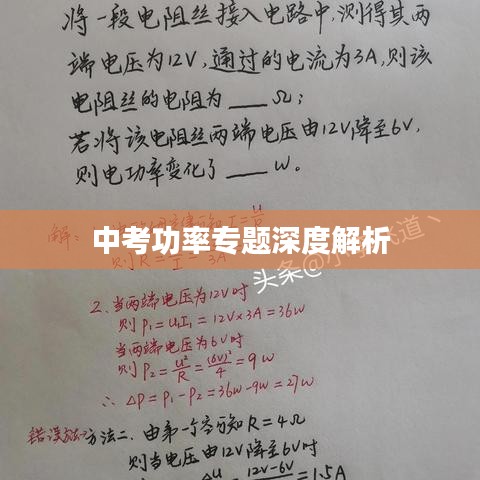 将一段电阻丝接入电路中,测得其两
端电压为12V,通过的电流为3A,则该
电阻丝的电阻为___Ω;
若将该电阻丝两端电压由12V降至6V,
则电功率变化了___W。
解:
中考功率专题深度解析
则R=
头条@小
道
2.当两端电压为12V时
则P₁=U₁I₁=12V×3A=36W
当两端电压为6V时
则P₂=U²/R=(6V)²/4=9W
∴ΔP=P₁-P₂=36W-9W=27W
错误法:方法二、由第一个空可知R=4Ω
则当电压由12V降至6V时
12V-6V
=1.5A